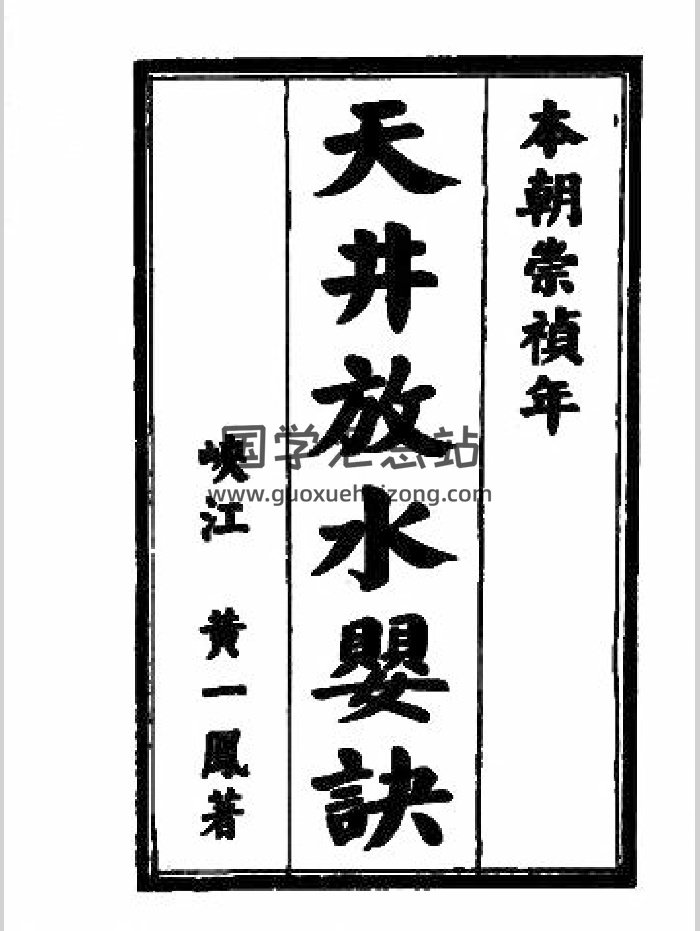 本朝崇禎年
天井放水嬰訣
峽江 黃一鳳著
国学汇总站
www.guoxuehuizong.com